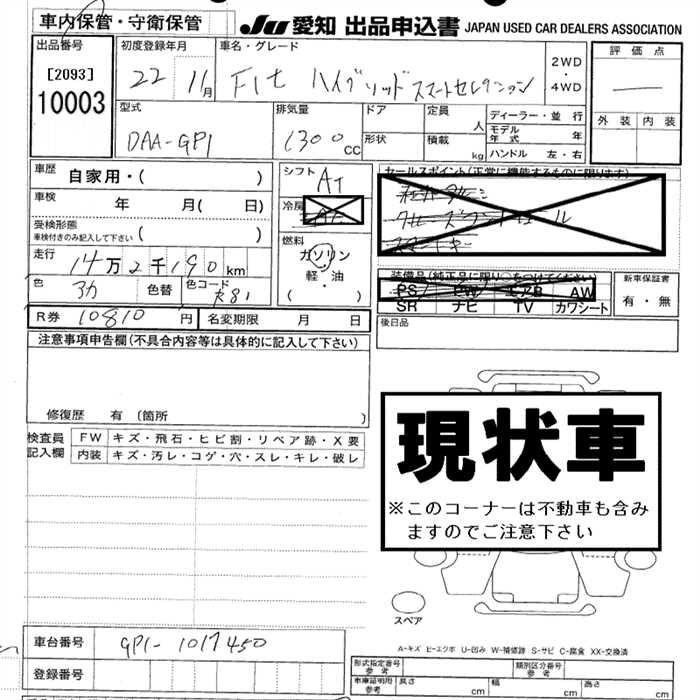 車内保管・守衛保管
JU 愛知 出品申込書 JAPAN USED CAR DEALERS ASSOCIATION
出品番号
[2093]
10003
初度登録年月
22 11月
車名・グレード
Fit ハイブリッド スマートセレクション
2WD
・
4WD
評価点
外装 内装
型式
DAA-GP1
排気量
1300cc
ドア
形状
定員
人
積載
kg
ディーラー・並行
モデル年式 年
ハンドル 左・右
車歴 自家用・( )
車検 年 月( 日)
受検形態
車検付きのみ記入して下さい ( )
走行 14万2千190km
色
色替
色コード
R81
シフト
AT
冷房
燃料
ガソリン
軽・油
( )
セールスポイント(正常に機能するものに限ります)
スマートキー
装備品(純正品に限り○をつけてください)
PS PW エアB AW
SR ナビ TV カワシート
新車保証書
有・無
R券 10810円
名変期限 月 日
後日品
注意事項申告欄(不具合内容等は具体的に記入して下さい)
修復歴 有 〔箇所 〕
検査員記入欄
FW キズ・飛石・ヒビ割・リペア跡・X要
内装 キズ・汚レ・コゲ・穴・スレ・キレ・破レ
現状車
※このコーナーは不動車も含み
ますのでご注意下さい
スペア
A-キズ E-エクボ U-凹み W-補修跡 S-サビ C-腐食 XX-交換済
車台番号 GP1-1017450
登録番号
形式指定番号
参考
類別区分番号
参考
車庫証明用
参考
長さ cm
幅 cm
高さ cm